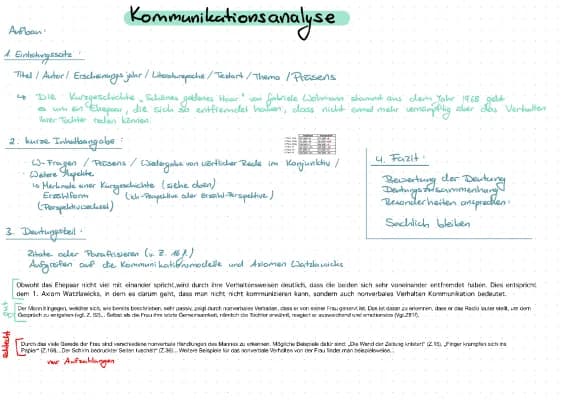 Kommunikationsanalyse
Aufbau:
1. Einleitungssatz:
Titel / Autor / Erscheinungsjahr / Literaturepoche / Textart / Thema / Präsens
↳ Die Kurzgeschichte „Schönes goldenes Haar" von Gabriele Wohmann stammt aus dem Jahr 1968 geht
es um ein Ehepaar, die sich so entfremdet haben, dass nicht einmal mehr vernünftig über das Verhalten
ihrer Tochter reden können.
2. kurze Inhaltsangabe:
W-Fragen / Präsens / Wiedergabe von wörtlicher Rede im Konjunktiv /
Weitere Aspekte
↳ Merkmale einer Kurzgeschichte (siehe oben)
Erzählform (Ich-Perspektive oder Erzähl-Perspektive)
(Perspektivwechsel)
3. Deutungsteil:
Zitate oder Parafrasieren (v. Z. 16 f.)
Aufgreifen auf die Kommunikationsmodelle und Axiomen Watzlawicks
4. Fazit:
Bewertung der Deutung
Deutungszusammenhang
Besonderheiten ansprechen
Sachlich bleiben
Obwohl das Ehepaar nicht viel mit einander spricht, wird durch ihre Verhaltensweisen deutlich, dass die beiden sich sehr voneinander entfremdet haben. Dies entspricht
dem 1. Axom Watzlawicks, in dem es darum geht, dass man nicht nicht kommunizieren kann, sondern auch nonverbales Verhalten Kommunikation bedeutet.
gut
Der Mann hingegen, welcher sich, wie bereits beschrieben, sehr passiv, zeigt durch nonverbales Verhalten, dass er von seiner Frau genervt ist. Das ist daran zu erkennen, dass er das Radio lauter stellt, um dem
Gespräch zu entgehen (vgl. Z. ). Selbst als die Frau ihre letzte Gemeinsamkeit, nämlich die Tochter erwähnt, reagiert er ausweichend und
schlecht
Durch das viele Gerede der Frau sind verschiedene nonverbale Handlungen des Mannes zu erkennen. Mögliche Beispiele dafür sind: „Die Wand der Zeitung knistert" (Z.16), „Finger krampften sich ins
Papier" Der Schirm bedruckter Seiten tuschelt" Weitere Beispiele für das nonverbale Verhalten von der Frau findet man beispielsweise...
nur Aufzählungen